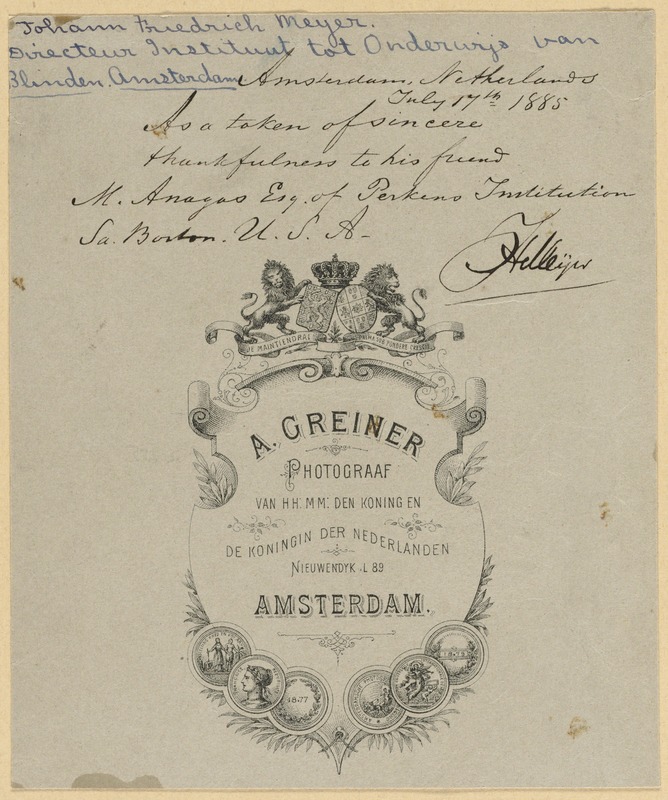 Johann Friedrich Meyer.
Directeur Instituut tot Onderwijs van
Blinden. Amsterdam
Amsterdam, Netherlands
July 17th 1885
As a token of sincere
thankfulness to his friend
M. Anagas Esq. of Perkens Institution
Sa. Boston. U. S. A-
JE MAINTIENDRAI
PALMA SUB PONDERE CRESCIT
A. GREINER
PHOTOGRAAF
VAN HH. MM. DEN KONING EN
DE KONINGIN DER NEDERLANDEN
NIEUWENDYK .L 89
AMSTERDAM.
1877